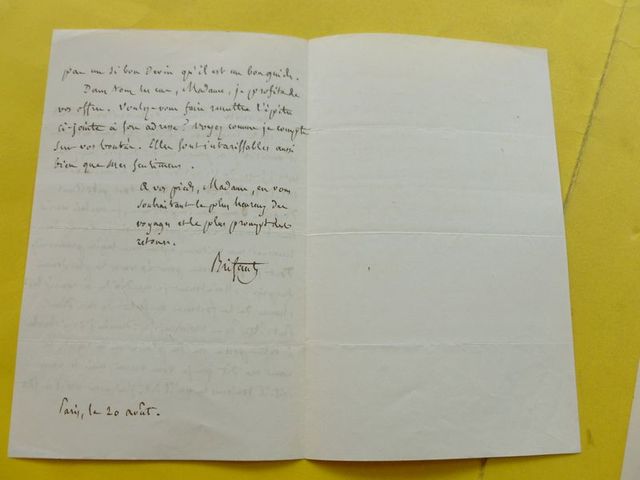 par un si bon Devin qu'il est un bon guide.
Dans tous les cas, Madame, je profite de
vos offres. Voulez-vous faire remettre l'épitre
ci-jointe à son adresse? Voyez comme je compte
sur vos bontés. Elles sont intarissables aussi
bien que mes sentimens.
A vos pieds, Madame, en vous
souhaitant le plus heureux des
voyages et le plus prompt des
retours.
Brifaut
Paris, le 20 août.